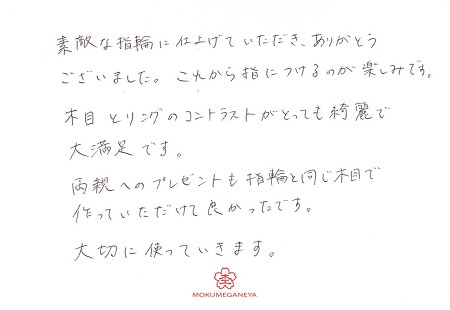 素敵な指輪に仕上げていただき、ありがとう
ございました。これから指につけるのが楽しみです。
木目とリングのコントラストがとっても綺麗で
大満足です。
両親へのプレゼントも指輪と同じ木目で
作っていただけて良かったです。
大切に使っていきます。
MOKUMEGANEYA